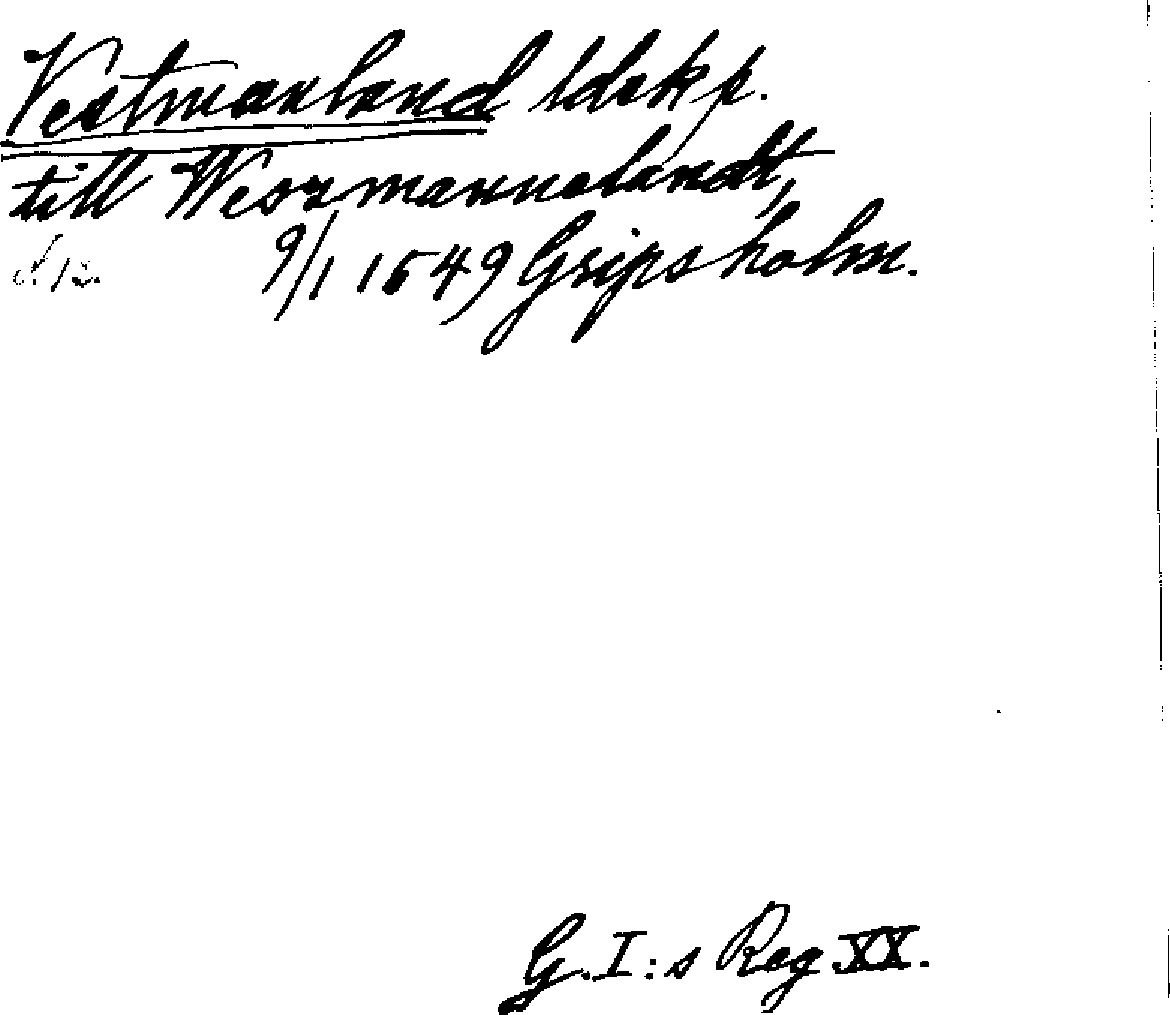 Vestmanland ldskp.
till Weszmannelandt,
9/1 1549 Gripsholm.
G. I:s Reg. XX.